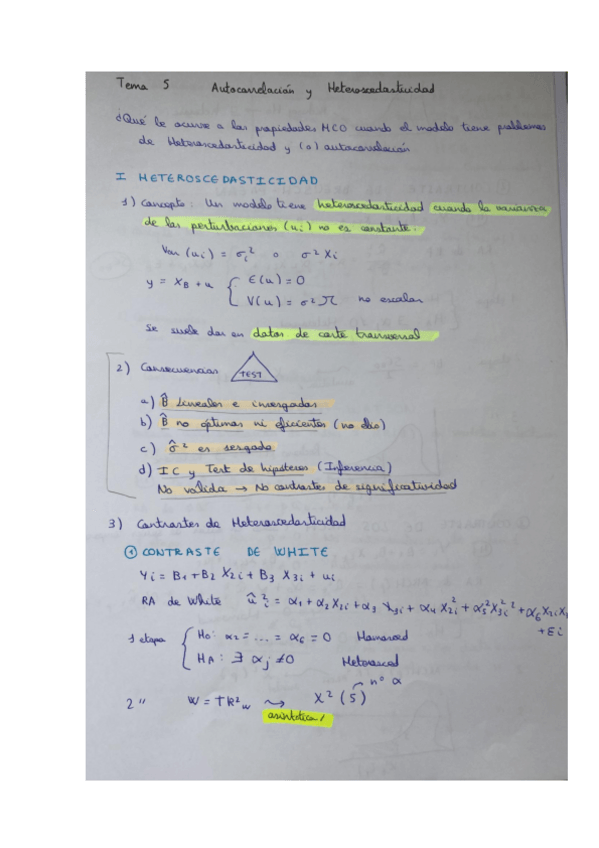 Tema 5 Autocorrelación y Heteroscedasticidad
¿Qué le ocurre a las propiedades MCO cuando el modelo tiene problemas
de Heteroscedasticidad y (o) autocorrelación
I HETEROSCEDASTICIDAD
1) Concepto: Un modelo tiene heteroscedasticidad cuando la varianza
de las perturbaciones (ui) no es constante.
Var (ui) = σi² o σ² Xi
y = XB + u { E(u) = 0
V(u) = σ² Ω no escalar
Se suele dar en datos de corte transversal
2) Consecuencias TEST
a) B̂ lineales e insesgados
b) B̂ no óptimos ni eficientes (no elio)
c) σ̂² es sesgado
d) IC y Test de hipótesis (Inferencia)
No valida → No contrastes de significatividad
3) Contrastes de Heteroscedasticidad
① CONTRASTE DE WHITE
Yi = B1 + B2 X2i + B3 X3i + ui
RA de White û²i = α1 + α2 X2i + α3 X3i + α4 X2i² + α5² X3i² + α6 X2i X
+ εi
1 etapa { H0: α2 = ... = α6 = 0 Homosced
HA: ∃ αj ≠ 0 Heterosced
nº α
2 " W = TR²w ⤳ X² (5)
asintótica/